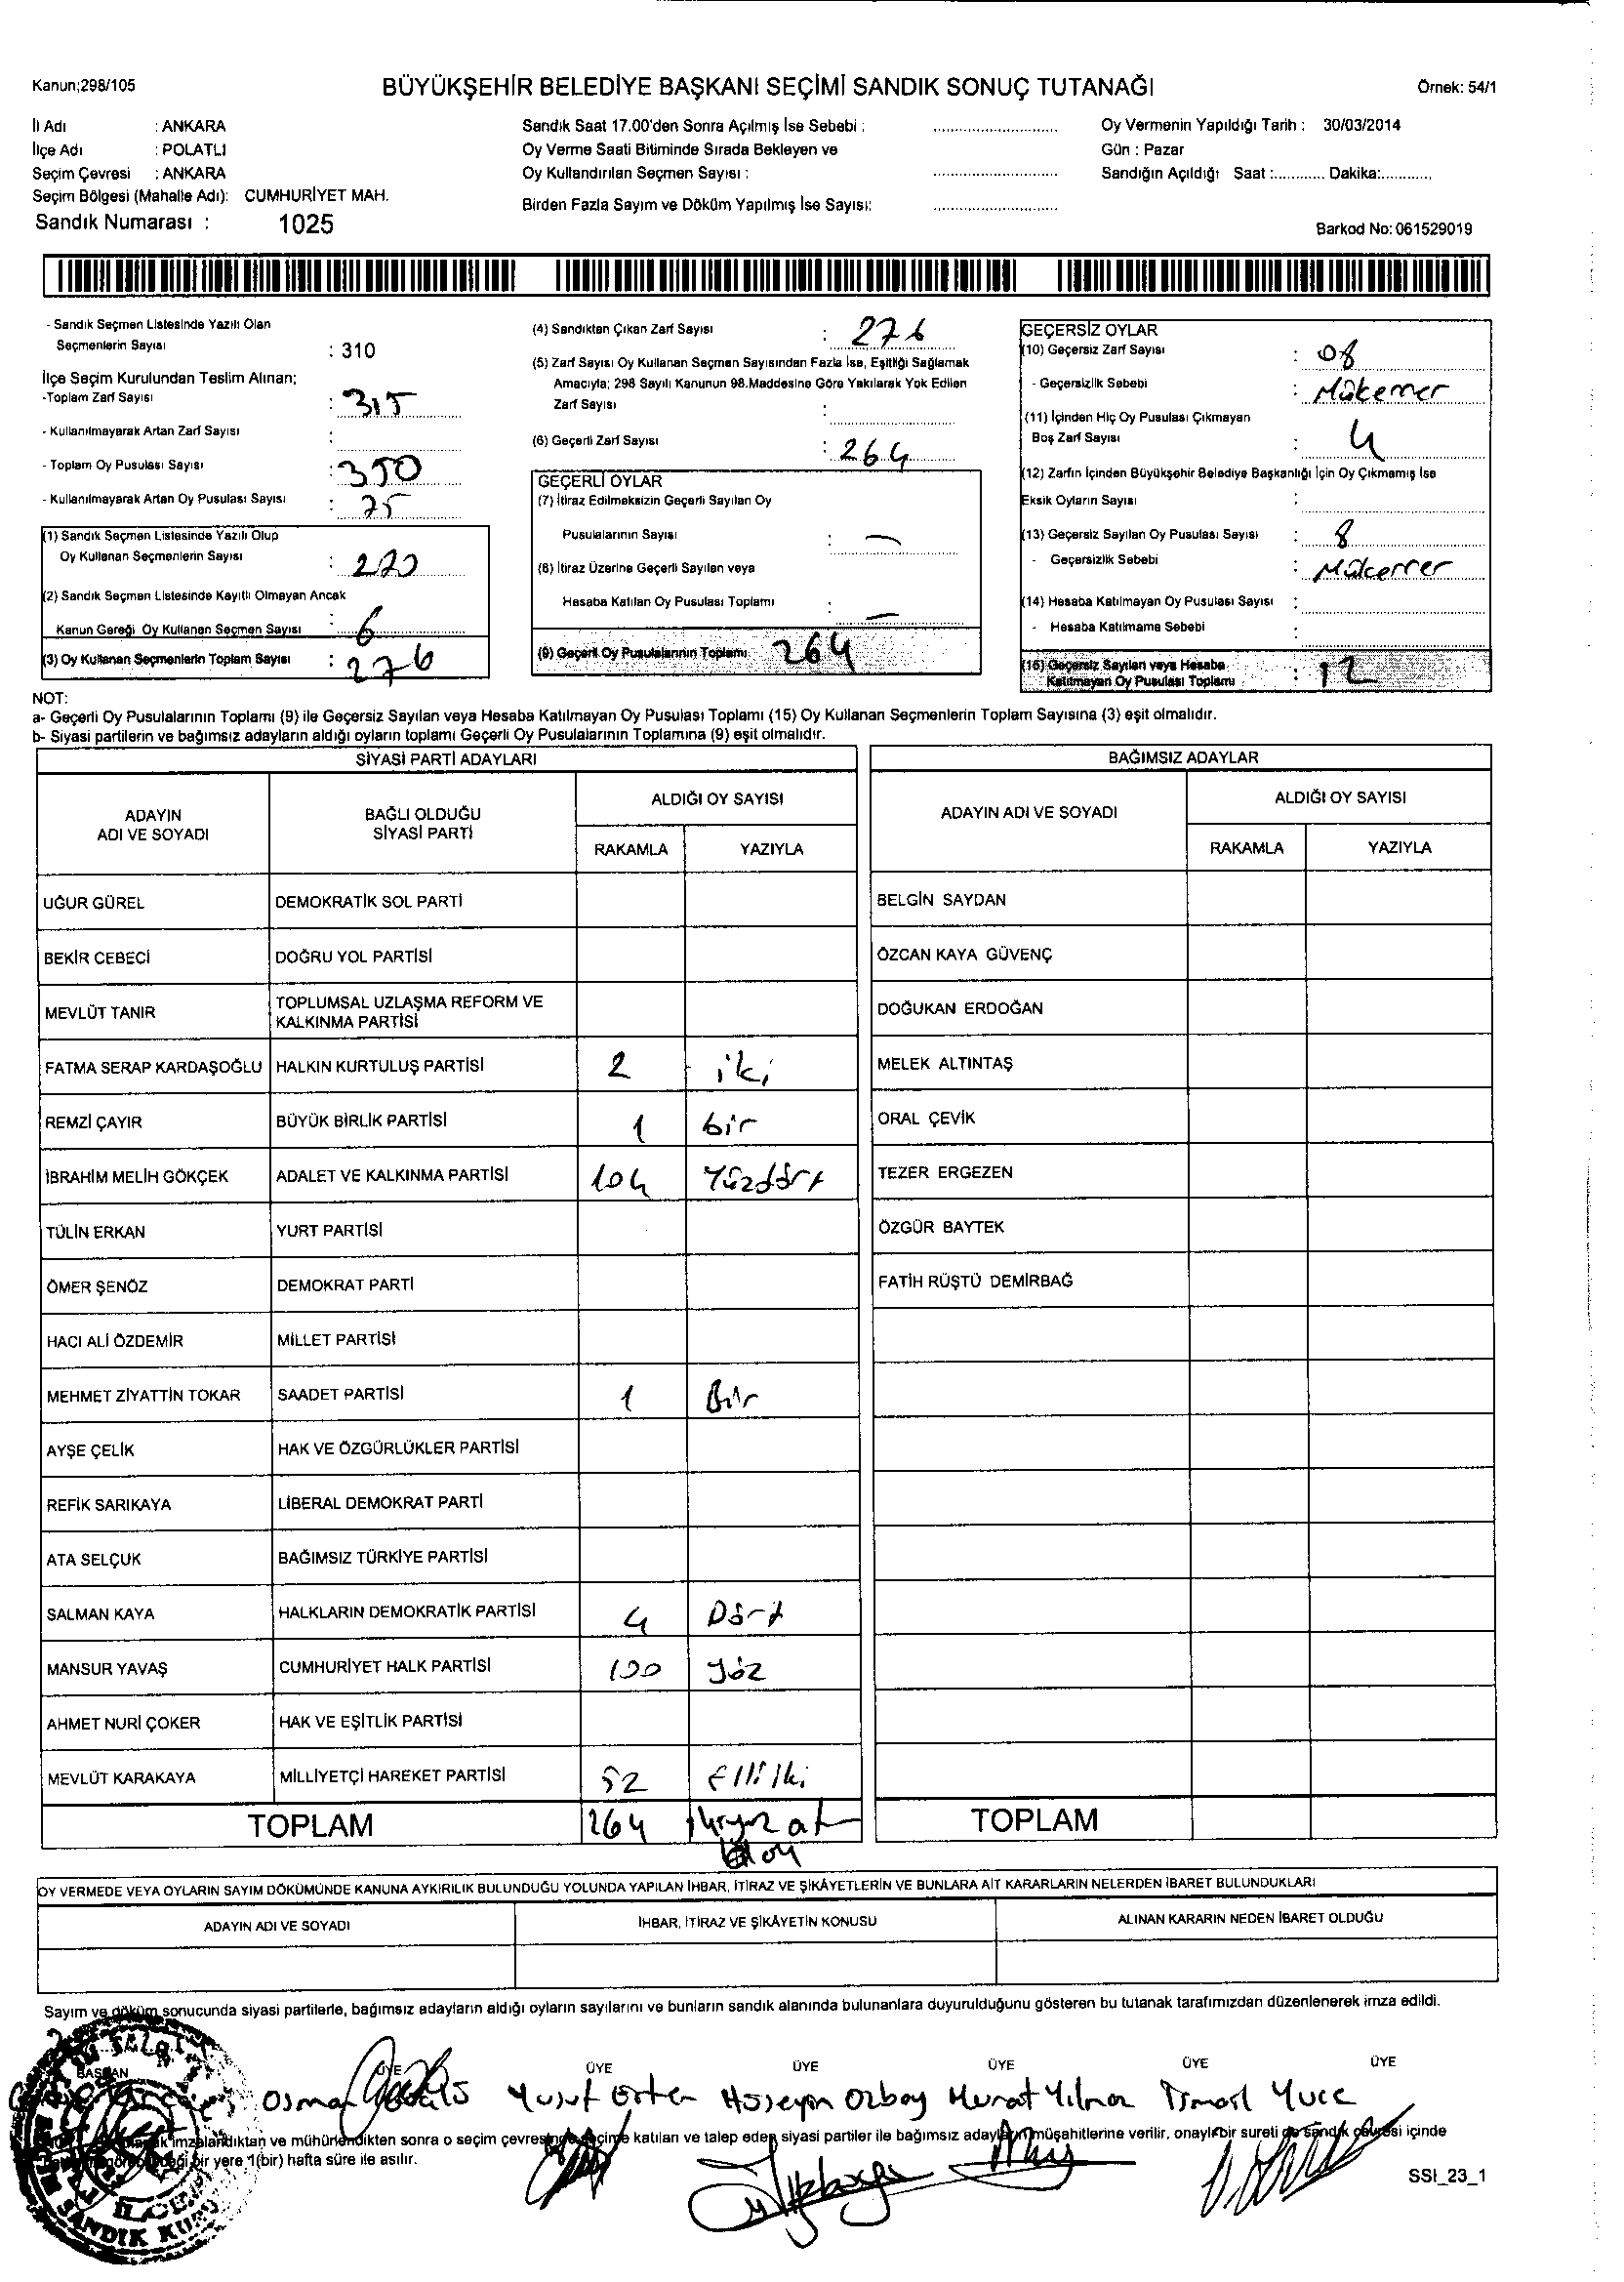 Kanun;298/105
BÜYÜKŞEHİR BELEDİYE BAŞKANI SEÇİMİ SANDIK SONUÇ TUTANAĞI
Örnek: 54/1
İl Adı : ANKARA
İlçe Adı : POLATLI
Seçim Çevresi : ANKARA
Seçim Bölgesi (Mahalle Adı): CUMHURİYET MAH.
Sandık Numarası : 1025
Sandık Saat 17.00'den Sonra Açılmış İse Sebebi :
Oy Verme Saati Bitiminde Sırada Bekleyen ve
Oy Kullandırılan Seçmen Sayısı :
Birden Fazla Sayım ve Döküm Yapılmış İse Sayısı:
Oy Vermenin Yapıldığı Tarih : 30/03/2014
Gün : Pazar
Sandığın Açıldığı Saat :............ Dakika:............
Barkod No: 061529019
- Sandık Seçmen Listesinde Yazılı Olan
Seçmenlerin Sayısı : 310
İlçe Seçim Kurulundan Teslim Alınan;
-Toplam Zarf Sayısı : 315
- Kullanılmayarak Artan Zarf Sayısı :
- Toplam Oy Pusulası Sayısı : 350
- Kullanılmayarak Artan Oy Pusulası Sayısı : 75
(1) Sandık Seçmen Listesinde Yazılı Olup
Oy Kullanan Seçmenlerin Sayısı : 270
(2) Sandık Seçmen Listesinde Kayıtlı Olmayan Ancak
Kanun Gereği Oy Kullanan Seçmen Sayısı : 6
(3) Oy Kullanan Seçmenlerin Toplam Sayısı : 276
(4) Sandıktan Çıkan Zarf Sayısı : 276
(5) Zarf Sayısı Oy Kullanan Seçmen Sayısından Fazla İse, Eşitliği Sağlamak
Amacıyla; 298 Sayılı Kanunun 98.Maddesine Göre Yakılarak Yok Edilen
Zarf Sayısı :
(6) Geçerli Zarf Sayısı : 264
GEÇERLİ OYLAR
(7) İtiraz Edilmeksizin Geçerli Sayılan Oy
Pusulalarının Sayısı : —
(8) İtiraz Üzerine Geçerli Sayılan veya
Hesaba Katılan Oy Pusulası Toplamı : —
(9) Geçerli Oy Pusulalarının Toplamı 264
GEÇERSİZ OYLAR
(10) Geçersiz Zarf Sayısı : 08
- Geçersizlik Sebebi : Mükerrer
(11) İçinden Hiç Oy Pusulası Çıkmayan
Boş Zarf Sayısı : 4
(12) Zarfın İçinden Büyükşehir Belediye Başkanlığı İçin Oy Çıkmamış İse
Eksik Oyların Sayısı :
(13) Geçersiz Sayılan Oy Pusulası Sayısı : 8
- Geçersizlik Sebebi : Mükerrer
(14) Hesaba Katılmayan Oy Pusulası Sayısı :
- Hesaba Katılmama Sebebi :
(15) Geçersiz Sayılan veya Hesaba
Katılmayan Oy Pusulası Toplamı : 12
NOT:
a- Geçerli Oy Pusulalarının Toplamı (9) ile Geçersiz Sayılan veya Hesaba Katılmayan Oy Pusulası Toplamı (15) Oy Kullanan Seçmenlerin Toplam Sayısına (3) eşit olmalıdır.
b- Siyasi partilerin ve bağımsız adayların aldığı oyların toplamı Geçerli Oy Pusulalarının Toplamına (9) eşit olmalıdır.
SİYASİ PARTİ ADAYLARI
ADAYIN ADI VE SOYADI
BAĞLI OLDUĞU SİYASİ PARTİ
ALDIĞI OY SAYISI
RAKAMLA YAZIYLA
UĞUR GÜREL DEMOKRATİK SOL PARTİ
BEKİR CEBECİ DOĞRU YOL PARTİSİ
MEVLÜT TANIR TOPLUMSAL UZLAŞMA REFORM VE
KALKINMA PARTİSİ
FATMA SERAP KARDAŞOĞLU HALKIN KURTULUŞ PARTİSİ 2 iki
REMZİ ÇAYIR BÜYÜK BİRLİK PARTİSİ 1 bir
İBRAHİM MELİH GÖKÇEK ADALET VE KALKINMA PARTİSİ 104 Yüzdört
TÜLİN ERKAN YURT PARTİSİ
ÖMER ŞENÖZ DEMOKRAT PARTİ
HACI ALİ ÖZDEMİR MİLLET PARTİSİ
MEHMET ZİYATTİN TOKAR SAADET PARTİSİ 1 Bir
AYŞE ÇELİK HAK VE ÖZGÜRLÜKLER PARTİSİ
REFİK SARIKAYA LİBERAL DEMOKRAT PARTİ
ATA SELÇUK BAĞIMSIZ TÜRKİYE PARTİSİ
SALMAN KAYA HALKLARIN DEMOKRATİK PARTİSİ 4 Dört
MANSUR YAVAŞ CUMHURİYET HALK PARTİSİ 100 yüz
AHMET NURİ ÇOKER HAK VE EŞİTLİK PARTİSİ
MEVLÜT KARAKAYA MİLLİYETÇİ HAREKET PARTİSİ 52 Elliiki
TOPLAM 264
BAĞIMSIZ ADAYLAR
ADAYIN ADI VE SOYADI
ALDIĞI OY SAYISI
RAKAMLA YAZIYLA
BELGİN SAYDAN
ÖZCAN KAYA GÜVENÇ
DOĞUKAN ERDOĞAN
MELEK ALTINTAŞ
ORAL ÇEVİK
TEZER ERGEZEN
ÖZGÜR BAYTEK
FATİH RÜŞTÜ DEMİRBAĞ
TOPLAM
OY VERMEDE VEYA OYLARIN SAYIM DÖKÜMÜNDE KANUNA AYKIRILIK BULUNDUĞU YOLUNDA YAPILAN İHBAR, İTİRAZ VE ŞİKÂYETLERİN VE BUNLARA AİT KARARLARIN NELERDEN İBARET BULUNDUKLARI
ADAYIN ADI VE SOYADI İHBAR, İTİRAZ VE ŞİKÂYETİN KONUSU ALINAN KARARIN NEDEN İBARET OLDUĞU
Sayım ve döküm sonucunda siyasi partilerle, bağımsız adayların aldığı oyların sayılarını ve bunların sandık alanında bulunanlara duyurulduğunu gösteren bu tutanak tarafımızdan düzenlenerek imza edildi.
BAŞKAN ÜYE ÜYE ÜYE ÜYE ÜYE ÜYE
Osman Yusuf Erten Hüseyin Ozbay Murat Yılmaz İsmail Yuce
imzalandıktan ve mühürlendikten sonra o seçim çevresinde seçime katılan ve talep eden siyasi partiler ile bağımsız adayların müşahitlerine verilir, onaylı bir sureti de sandık çevresi içinde
bir yere 1(bir) hafta süre ile asılır.
SSI_23_1